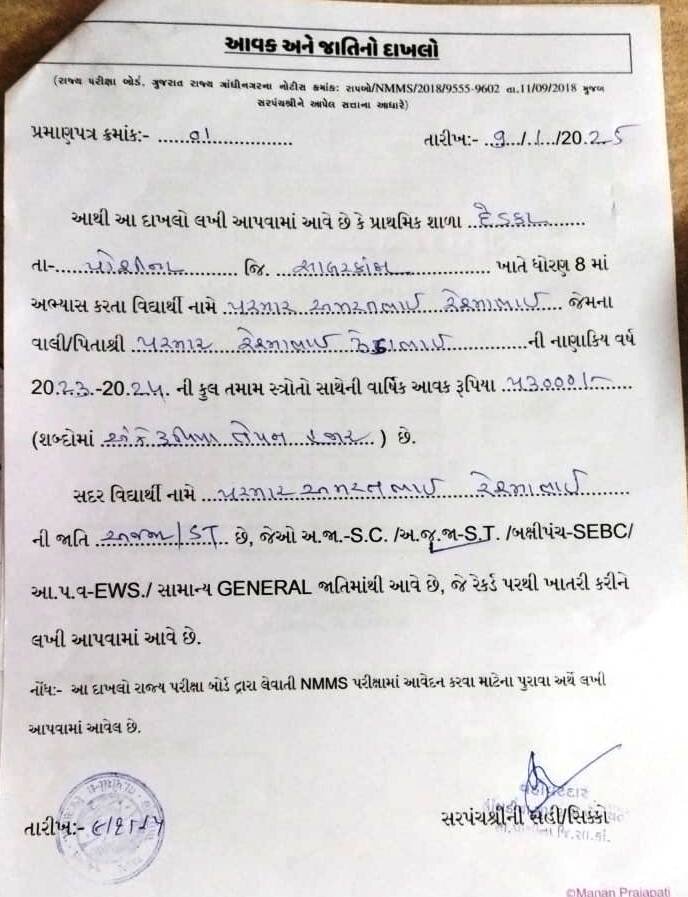 આવક અને જાતિનો દાખલો
(રાજ્ય પરીક્ષા બોર્ડ, ગુજરાત રાજ્ય ગાંધીનગરના નોટીસ ક્રમાંક: રાપબો/NMMS/2018/9555-9602 તા.11/09/2018 મુજબ
સરપંચશ્રીને આપેલ સત્તાના આધારે)
પ્રમાણપત્ર ક્રમાંક:- 01 તારીખ:- 9/1/2025
આથી આ દાખલો લખી આપવામાં આવે છે કે પ્રાથમિક શાળા
તા- પોશીના જિ. સાબરકાંઠા ખાતે ધોરણ 8 માં
અભ્યાસ કરતા વિદ્યાર્થી નામે પરમાર અમરતભાઈ રેશ્માભાઈ જેમના
વાલી/પિતાશ્રી પરમાર રેશ્માભાઈ ની નાણાકિય વર્ષ
2023-2024 ની કુલ તમામ સ્ત્રોતો સાથેની વાર્ષિક આવક રૂપિયા ૫૩000/-
(શબ્દોમાં અંકે રૂપિયા તેપન હજાર) છે.
સદર વિદ્યાર્થી નામે પરમાર અમરતભાઈ રેશ્માભાઈ
ની જાતિ અજજા/ST છે, જેઓ અ.જા.-S.C. /અ.જ.જા-S.T. /બક્ષીપંચ-SEBC/
આ.પ.વ-EWS./ સામાન્ય GENERAL જાતિમાંથી આવે છે, જે રેકર્ડ પરથી ખાતરી કરીને
લખી આપવામાં આવે છે.
નોંધ:- આ દાખલો રાજ્ય પરીક્ષા બોર્ડ દ્વારા લેવાતી NMMS પરીક્ષામાં આવેદન કરવા માટેના પુરાવા અર્થે લખી
આપવામાં આવેલ છે.
વહીવટદાર
તારીખ:- સરપંચશ્રીની સહી/સિક્કો
©Manan Prajapati